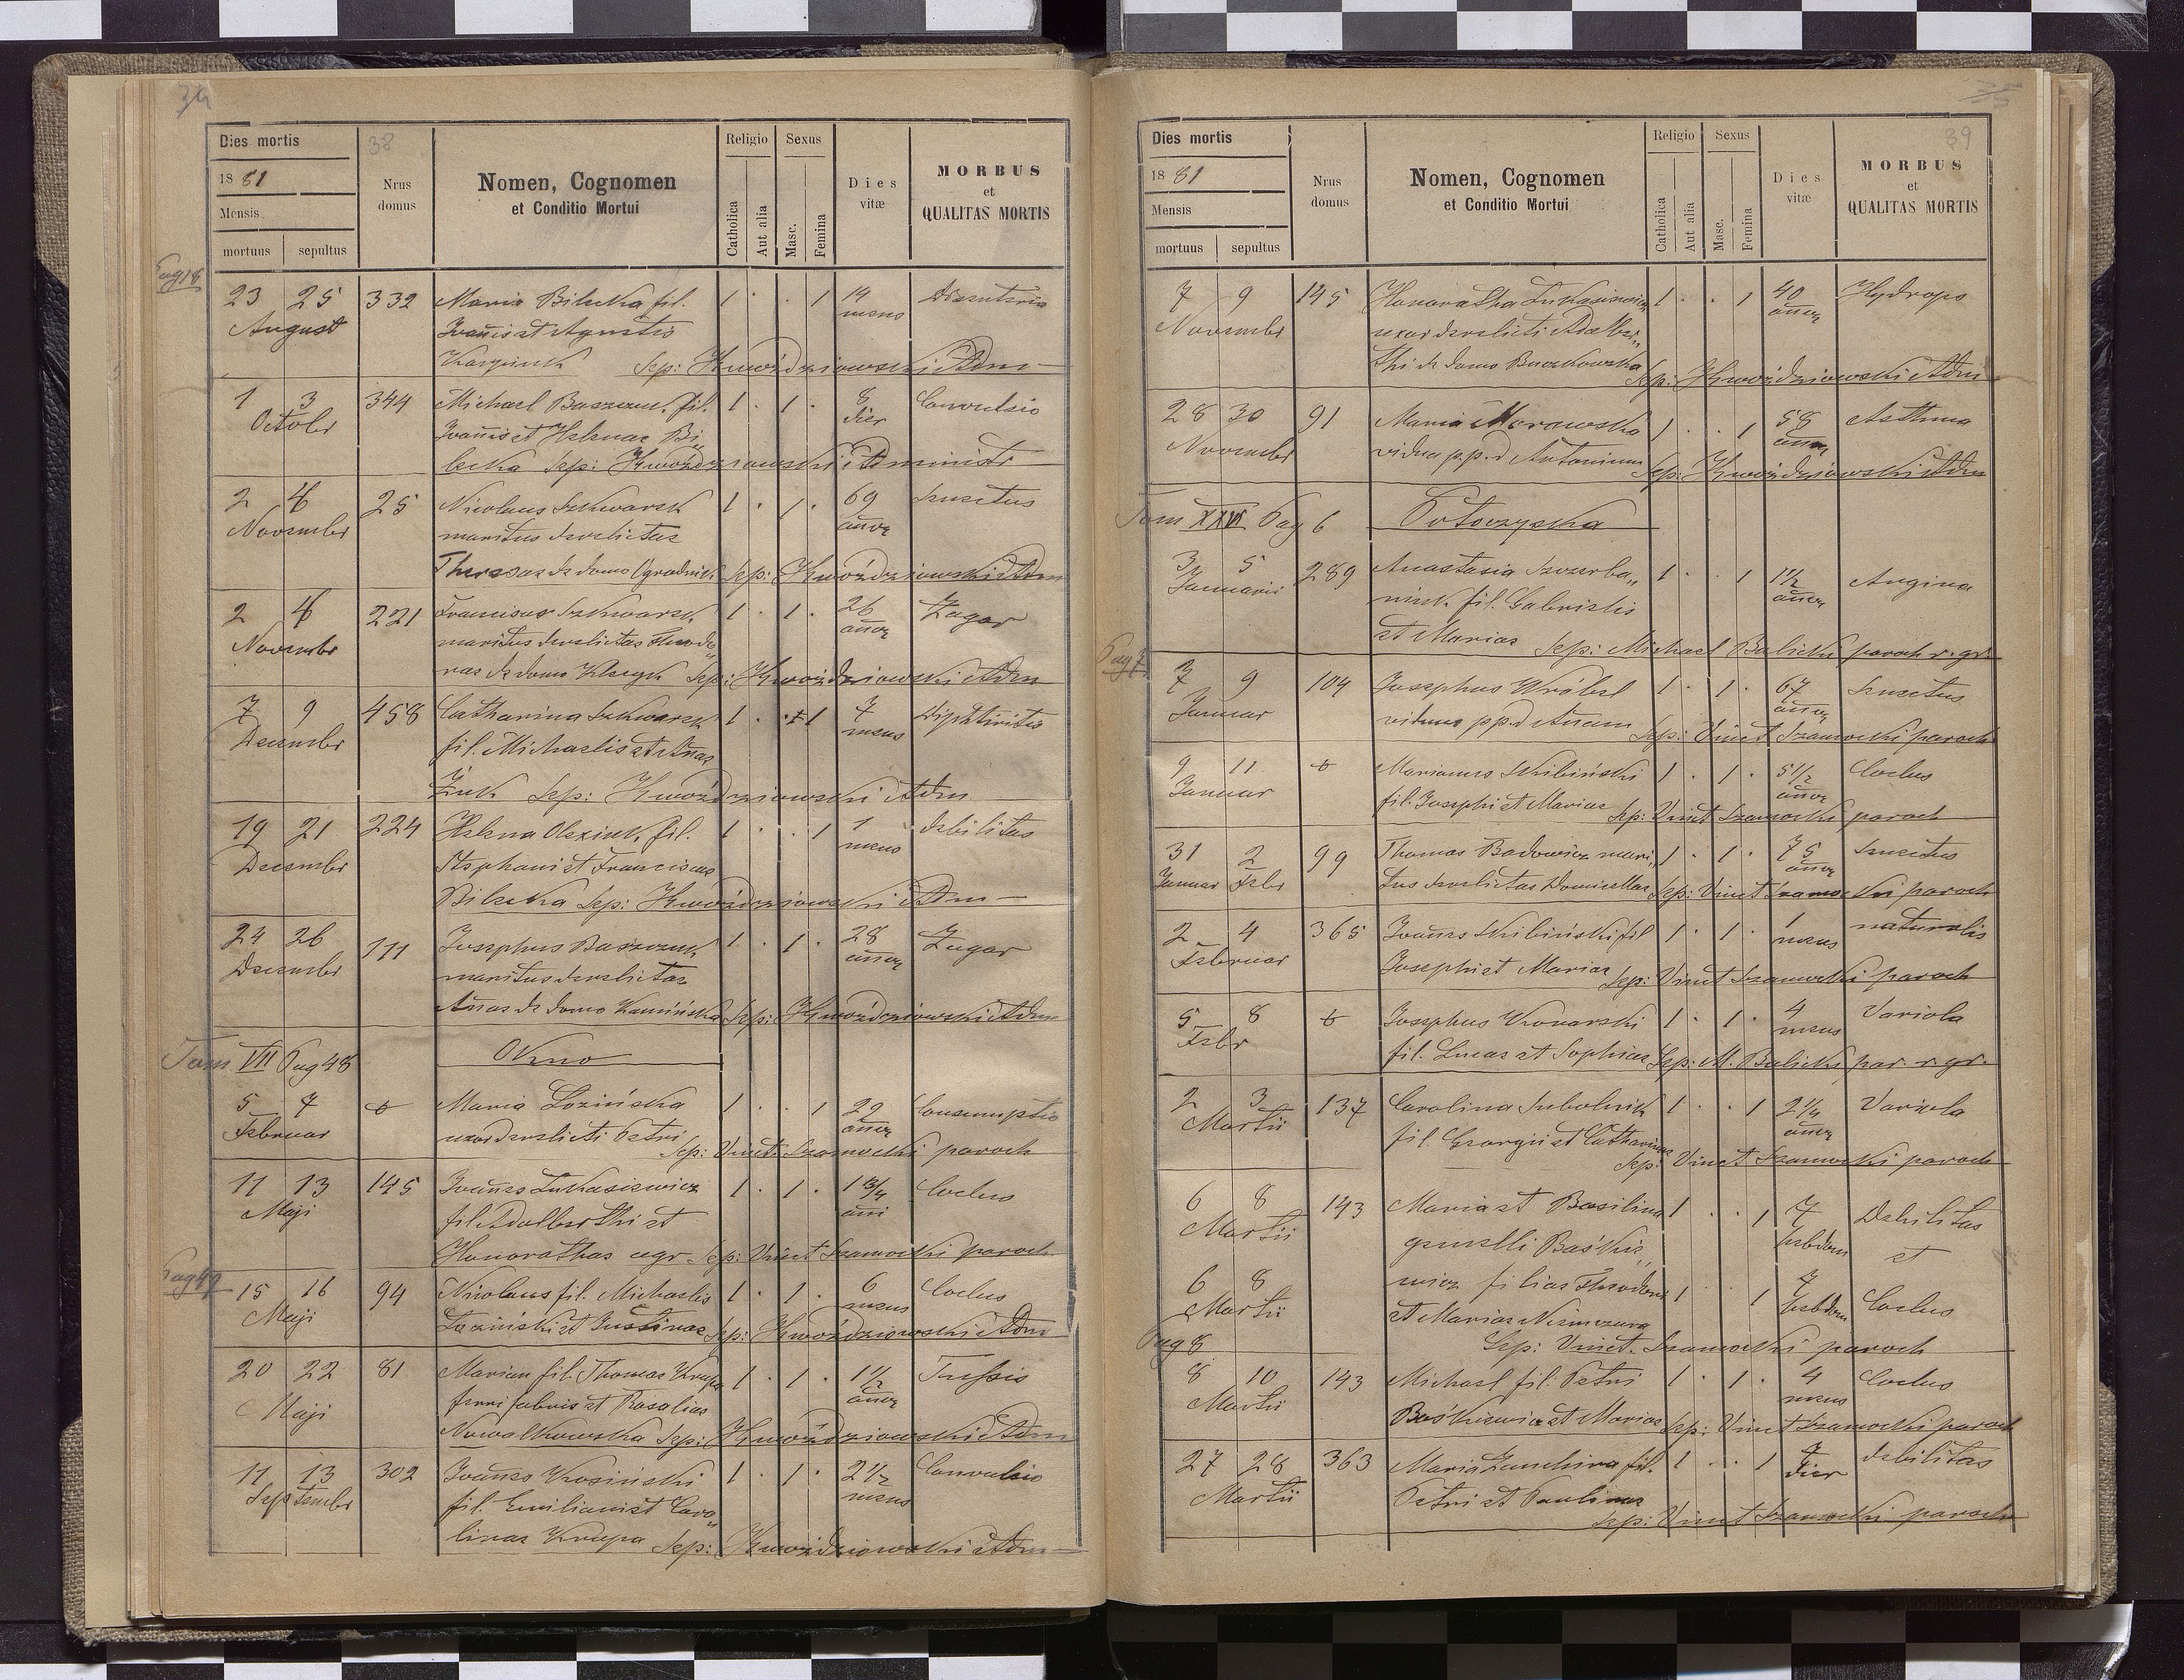 34
Dies mortis
38
Religio Sexus
18 81
Nrus domus
Nomen, Cognomen
et Conditio Mortui
Dies vitæ
MORBUS
et
QUALITAS MORTIS
Mensis
Catholica Aut alia Masc. Femina
mortuus sepultus
Pag 18
23 25 332 Maria Bilecka fil. 1 . . 1 14
August Joannis et Agnetis mens
Sep: Hwoździowski Adm
1 3 344 Michael Baszczuk fil. 1 . 1 . 8 Convulsio
Octobr Joannis et Helenae Bi„ dier
lecka Sep: Hwoździowski Administr
2 4 25 Nicolaus Szkwarek 1 . 1 . 69 Senectus
Novembr maritus derelictae annor
Theresae de domo Ogrodnik Sep: Hwoździowski Adm
2 4 221 Franciscus Szkwarek 1 . 1 . 26 Zagar
Novembr maritus derelictae Theodo„ annor
rae de domo Sep: Hwoździowski Adm
7 9 458 Catharina Szkwarek 1 . . 1 7 Diphtiritis
Decembr fil. Michaelis et Annae mens
Żuk Sep: Hwoździowski Adm
19 21 224 Helena Olexiuk fil. 1 . . 1 1 debilitas
Decembr Stephani et Franciscae mens
Bilecka Sep: Hwoździowski Adm
24 26 111 Josephus Baszczuk 1 . 1 . 28 Zagar
Decembr maritus derelictae annor
Annae de domo Kamińska Sep: Hwoździowski Adm
Tom VII Pag 48 Okno
5 7 Maria Łozińska 1 . . 1 22 Consumptio
Februar uxor derelicti Petri annor
Sep: Vinct Szamocki paroch
11 13 145 Joannes Łukasiewicz 1 . 1 . 1 3/4 Coclus
Maji fil. Adalberthi et anni
Honorathae agr. Sep: Vinct Szamocki paroch
Pag 49
15 16 94 Nicolaus fil. Michaelis 1 . 1 . 6 Coclus
Maji Łoziński et Justinae mens Sep: Hwoździowski Adm
20 22 81 Marian fil. Thomae Krupa 1 . 1 . 1 1/2 Tussis
Maji ferri fabris et Rosaliae annor
Nowalkowska Sep: Hwoździowski Adm
11 13 302 Joannes Krosiński 1 . 1 . 2 1/2 Convulsio
Septembr fil. Emiliani et Caro„ mens
linae Krupa Sep: Hwoździowski Adm
35
39
Dies mortis
Religio Sexus
18 81
Nrus domus
Nomen, Cognomen
et Conditio Mortui
Dies vitæ
MORBUS
et
QUALITAS MORTIS
Mensis
Catholica Aut alia Masc. Femina
mortuus sepultus
7 9 145 Honoratha Łukasiewicz 1 . . 1 40 Hydrops
Novembr uxor derelicti Adalber„ annor
thi de domo Buczkowska Sep: Hwoździowski Adm
28 30 91 Maria Morawska 1 . . 1 58 Asthma
Novembr vidua p.p.d Antonium annor Sep: Hwoździowski Adm
Tom XXVI Pag 6 Potoczyska
3 5 289 Anastasia Szczerba„ 1 . . 1 1 1/2 Angina
Januarii niuk fil. Gabrielis annor
et Mariae Sep: Michael Balicki paroch r. gr.
Pag 7
7 9 104 Josephus Wróbel 1 . 1 . 67 Senectus
Januar viduus p.p.d Annam annor Sep: Vinct Szamocki paroch
9 11 Marianus Skibiński 1 . 1 . 5 1/2 Coclus
Januar fil. Josephi et Mariae annor Sep: Vinct Szamocki paroch
31 2 99 Thomas Badowicz mari„ 1 . 1 . 75 Senectus
Januar Febr tus derelictae Domicellae annor Sep: Vinct Szamocki paroch
2 4 365 Joannes Skibiński fil 1 . 1 . 1 naturalis
Februar Josephi et Mariae mens Sep: Vinct Szamocki paroch
5 8 Josephus 1 . 1 . 4 Variola
Febr fil. Lucae et Sophiae mens Sep: M. Balicki par. r. gr.
2 3 137 Carolina Sobolnik 1 . . 1 2 1/4 Variola
Martii fil. Georgii et Catharinae annor
Sep: Vinct Szamocki paroch
6 8 143 Maria et Basilina 1 . . 1 7 Debilitas
Martii gemelli Baśkie„ hebdom et
6 8 wicz filiae Theodori 1 . . 1 7 Coclus
Martii et Mariae hebdom
Pag 8
Sep: Vinct. Szamocki paroch
8 10 143 Michael fil. Petri 1 . 1 . 4 Coclus
Martii Baśkiewicz et Mariae mens Sep: Vinct Szamocki paroch
27 28 363 Maria fil. 1 . . 1 7 debilitas
Martii Petri et Paulinae dier
Sep: Vinct Szamocki paroch